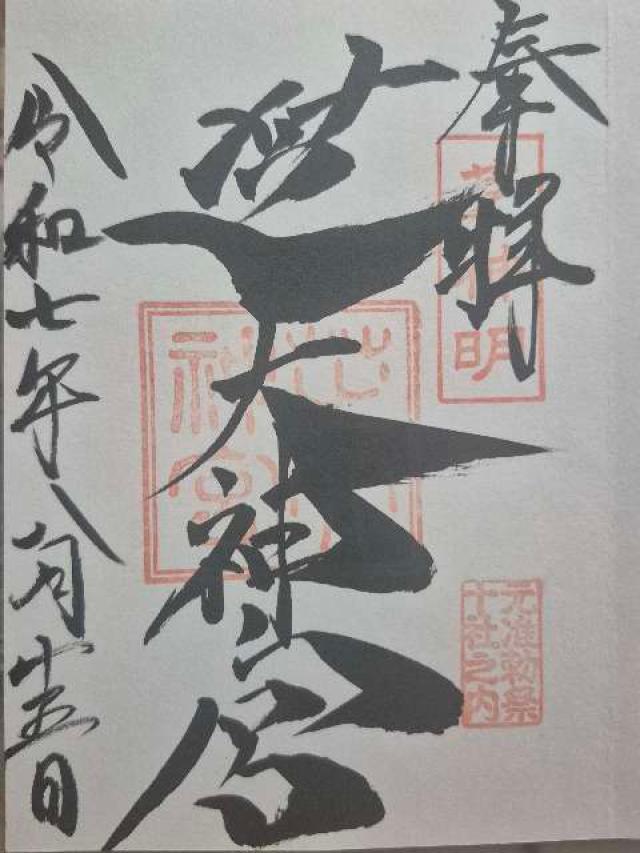 奉拝
芝神明
元准勅祭
十社之内
芝大神宮
芝大
神宮
令和七年八月廿五日